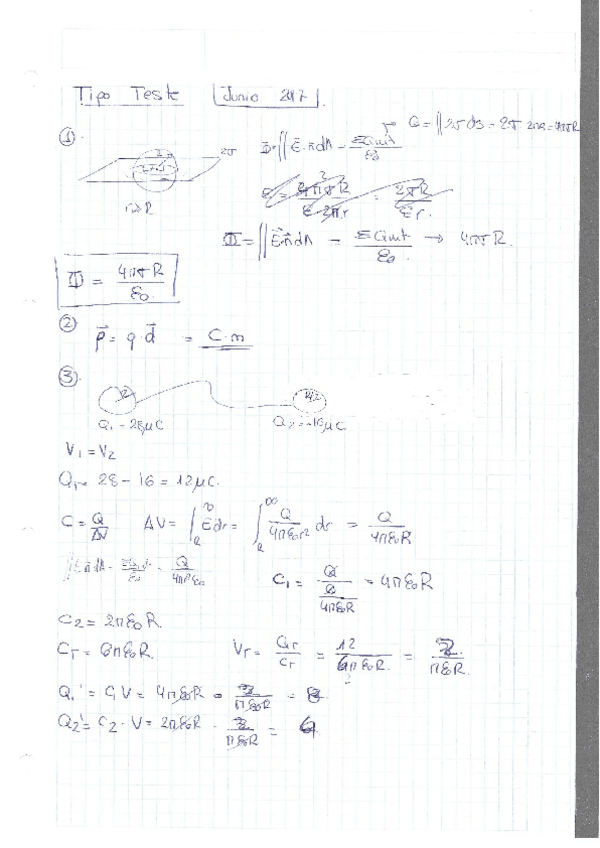 Tipo Teste Junio 2017.
①
Q = ∬ 2σ ds = 2σ 2πR = 4πσR
Φ = ∬ E⃗·n⃗ dA = ΣQint / ε₀
2σ
r>R
Φ = ∬ E⃗ n⃗ dA = ΣQint / ε₀ → 4πσR.
Φ = 4πσR / ε₀
② p⃗ = q·d⃗ = C·m
③
R R/2
Q₁ = 28μC Q₂ = -16μC
V₁ = V₂
Q₁ = 28 - 16 = 12μC.
C = Q/ΔV ΔV = ∫_R^∞ E⃗ dr = ∫_R^∞ Q/4πε₀r² dr = Q/4πε₀R
C₁ = Q / (Q/4πε₀R) = 4πε₀R
C₂ = 2πε₀R.
C_T = 6πε₀R. V_T = Q_T/C_T = 12/6πε₀R = 2/πε₀R.
Q₁' = C₁V = 4πε₀R · 2/πε₀R = 8
Q₂' = C₂·V = 2πε₀R · 2/πε₀R = 4